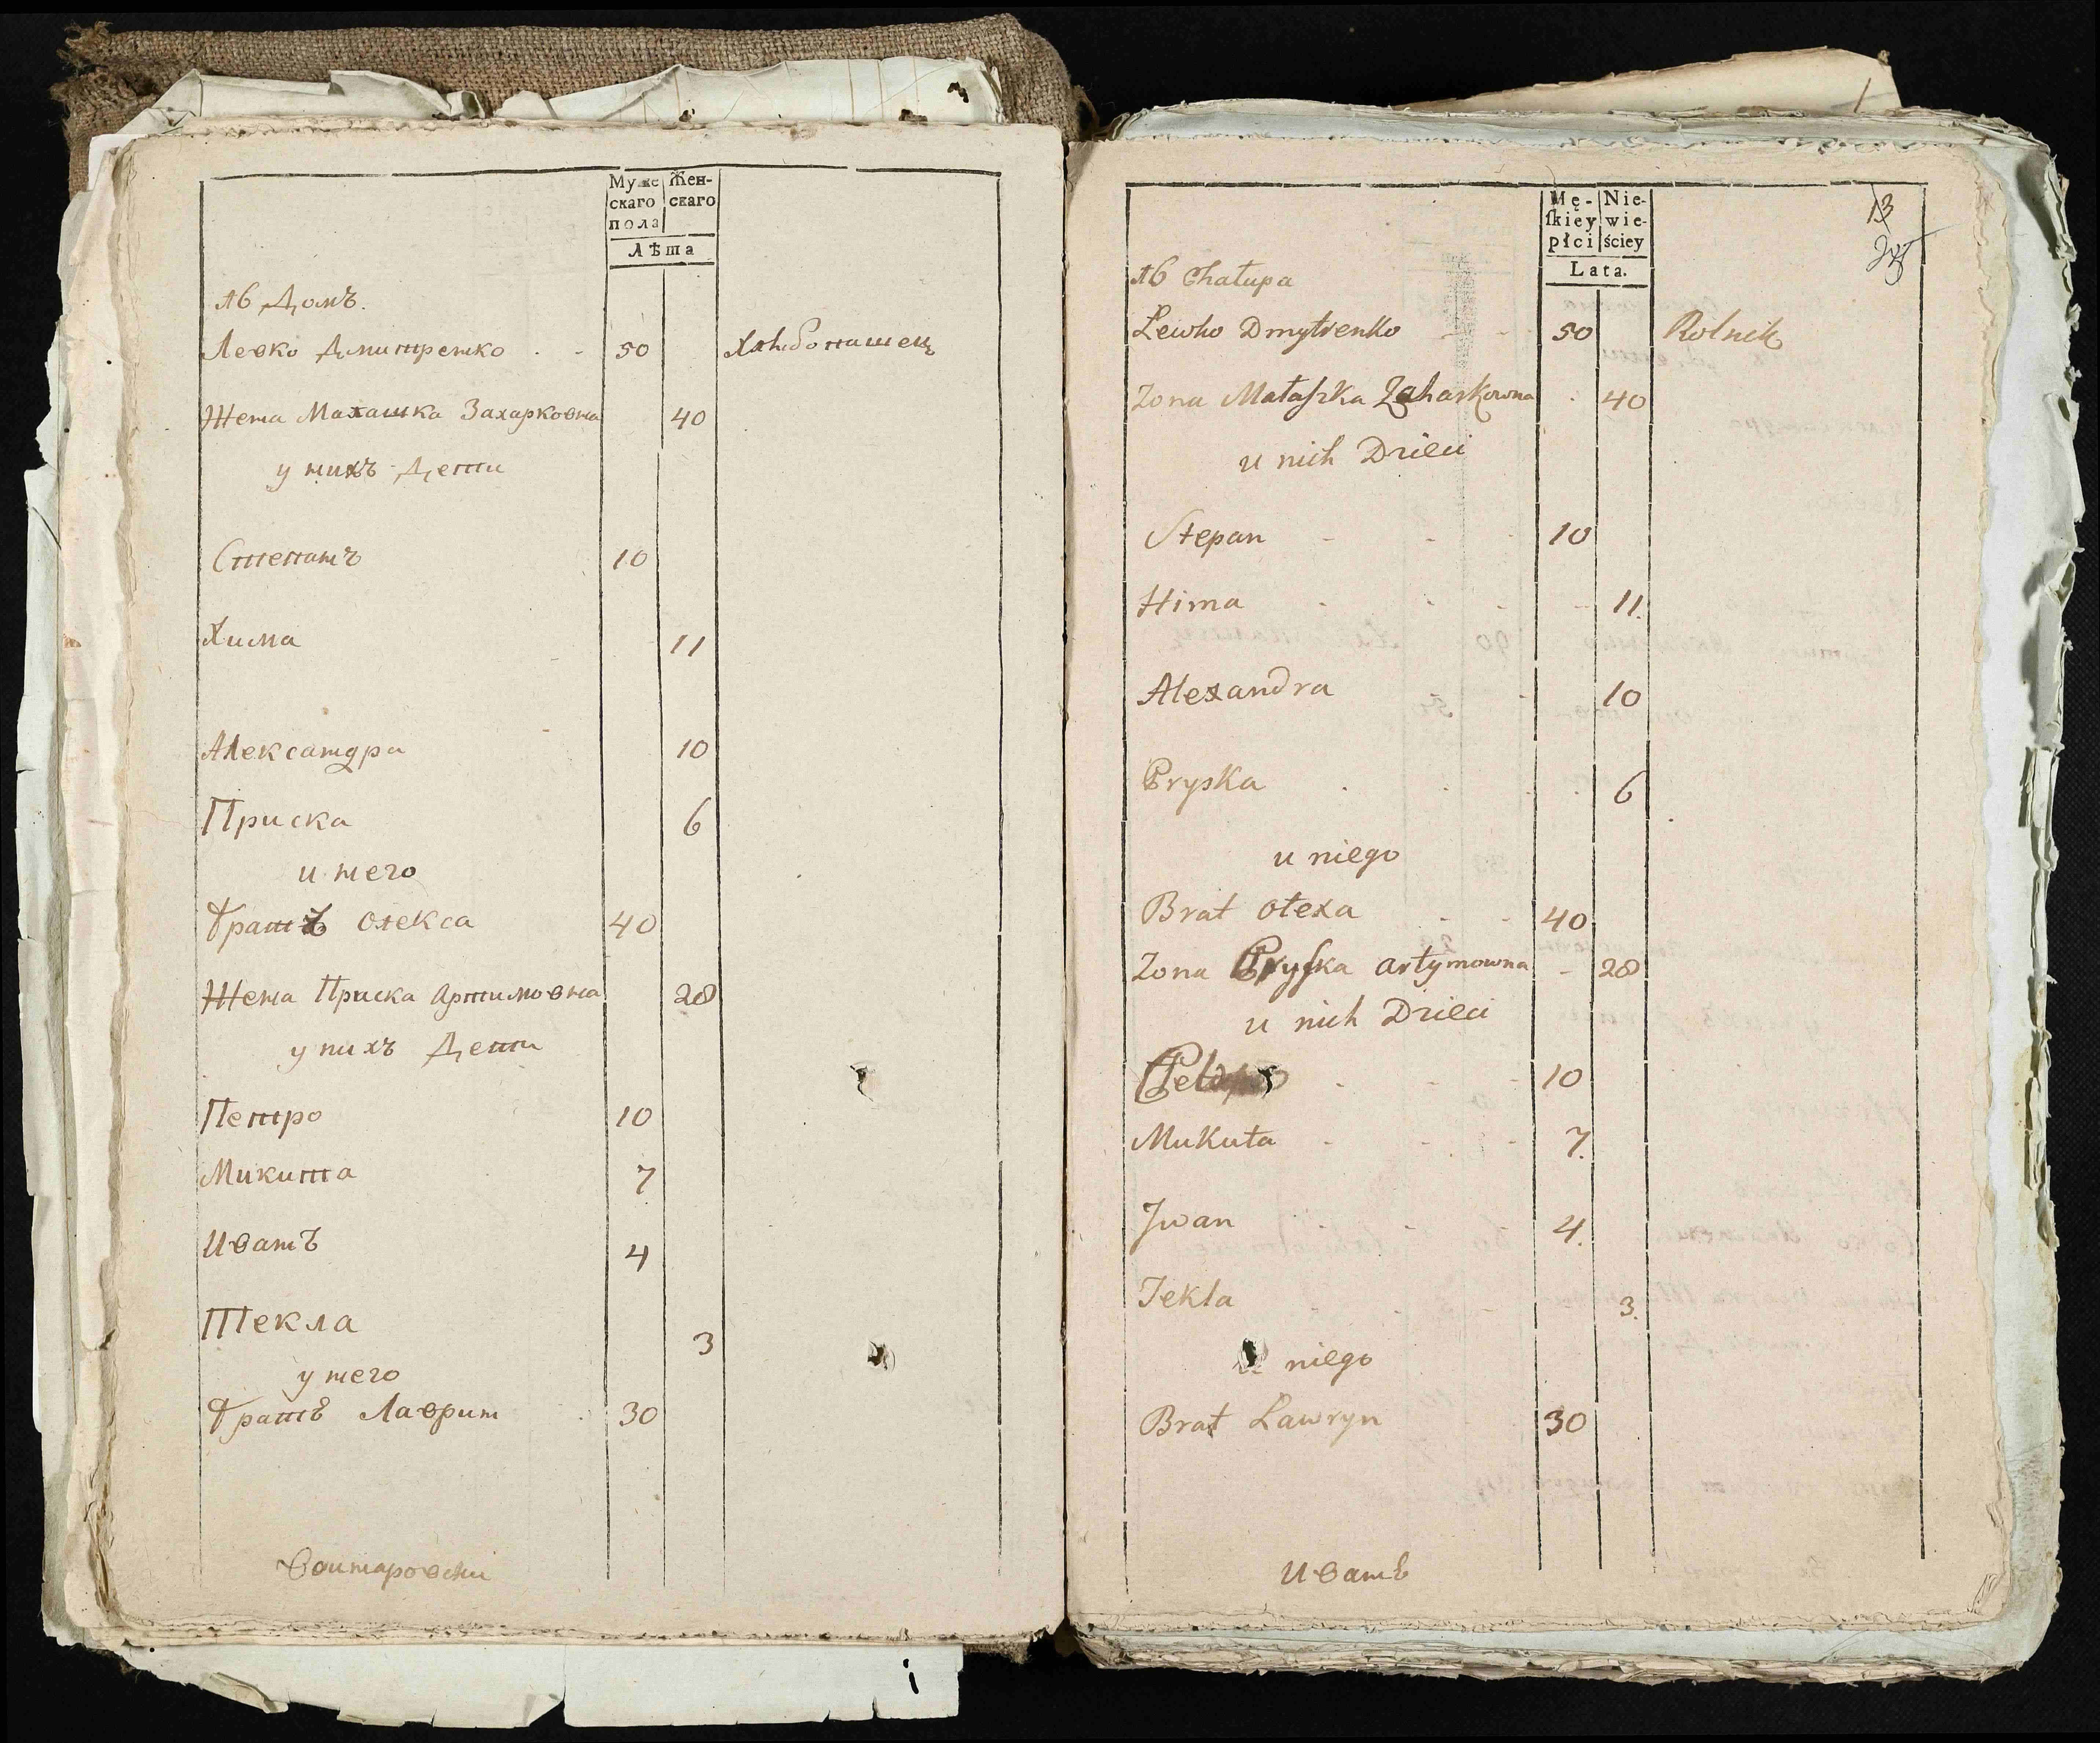 Муже
скаго
пола
Жен-
скаго
Лѣта
16 Домъ.
Левко Дмитренко 50 Хлѣбопашец
Жена Малашка Захарковна 40
у нихъ Дети
Степанъ 10
Хима 11
Александра 10
Приска 6
и него
Братъ Олекса 40
Жена Приска Артимовна 28
у нихъ Дети
Петро 10
Микита 7
Иванъ 4
Текла 3
у него
Братъ Лаврин 30
13
Mę-
skiey
płci
Nie-
wie-
ściey
Lata.
16 Chałupa
Lewko Dmytrenko 50 Rolnik
Zona Małaszka Zaharkowna 40
u nich Dzieci
Stepan 10
Hima 11.
Alexandra 10
Pryska 6
u niego
Brat Ołexa 40
Zona Pryska Artymowna 28
u nich Dzieci
10
Mukuta 7.
Jwan 4.
Tekla 3.
u niego
Brat Ławryn 30
Иванъ